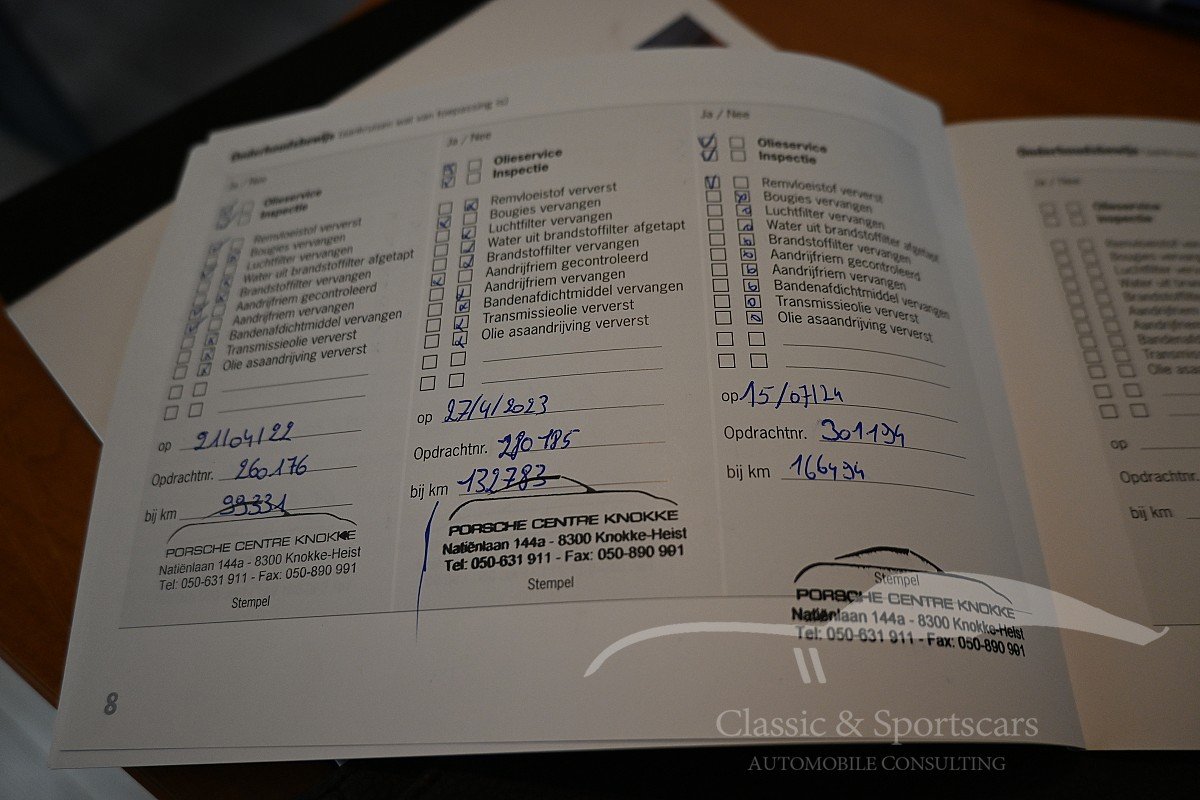 Onderhoudsbewijs (aankruisen wat van toepassing is)
Ja / Nee
Olieservice
Inspectie
Remvloeistof ververst
Bougies vervangen
Luchtfilter vervangen
Water uit brandstoffilter afgetapt
Brandstoffilter vervangen
Aandrijfriem gecontroleerd
Aandrijfriem vervangen
Bandenafdichtmiddel vervangen
Transmissieolie ververst
Olie asaandrijving ververst
op 21/04/22
Opdrachtnr. 260176
bij km 99331
PORSCHE CENTRE KNOKKE
Natiënlaan 144a - 8300 Knokke-Heist
Tel: 050-631 911 - Fax: 050-890 991
Stempel
8
Ja / Nee
Olieservice
Inspectie
Remvloeistof ververst
Bougies vervangen
Luchtfilter vervangen
Water uit brandstoffilter afgetapt
Brandstoffilter vervangen
Aandrijfriem gecontroleerd
Aandrijfriem vervangen
Bandenafdichtmiddel vervangen
Transmissieolie ververst
Olie asaandrijving ververst
op 27/4/2023
Opdrachtnr. 280185
bij km 132783
PORSCHE CENTRE KNOKKE
Natiënlaan 144a - 8300 Knokke-Heist
Tel: 050-631 911 - Fax: 050-890 991
Stempel
Ja / Nee
Olieservice
Inspectie
Remvloeistof ververst
Bougies vervangen
Luchtfilter vervangen
Water uit brandstoffilter afgetapt
Brandstoffilter vervangen
Aandrijfriem gecontroleerd
Aandrijfriem vervangen
Bandenafdichtmiddel vervangen
Transmissieolie ververst
Olie asaandrijving ververst
op 15/07/24
Opdrachtnr. 301194
bij km 166494
Stempel
PORSCHE CENTRE KNOKKE
Natiënlaan 144a - 8300 Knokke-Heist
Tel: 050-631 911 - Fax: 050-890 991
Onderhoudsbewijs
Ja / Nee
Olieservice
Inspectie
op
Opdrachtnr.
bij km
Classic & Sportscars
AUTOMOBILE CONSULTING